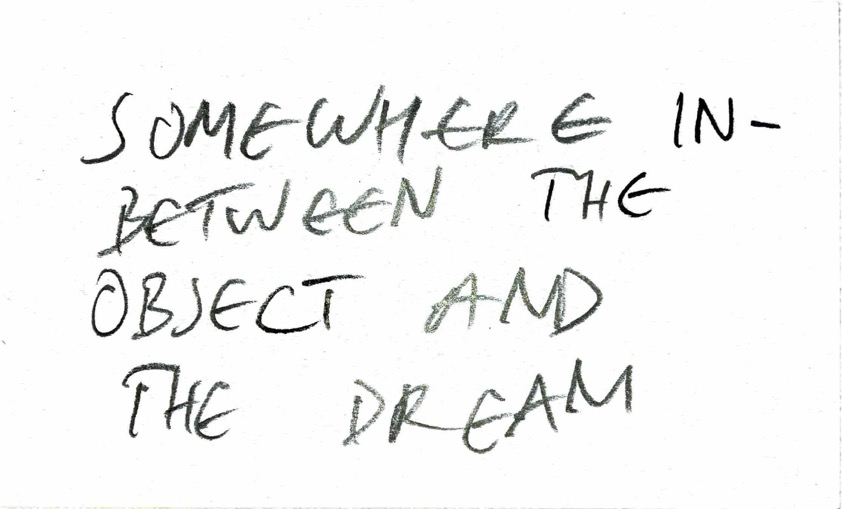 SOMEWHERE IN-
BETWEEN THE
OBJECT AND
THE DREAM